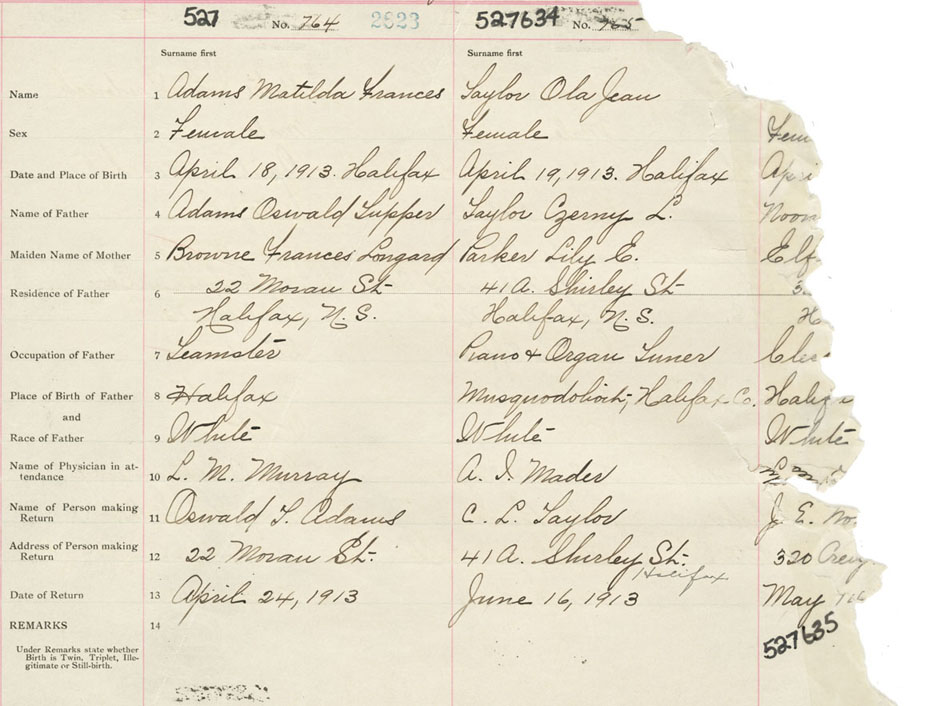 527 No. 764 2623 527634 No. 765
Surname first Surname first
Name 1 Adams Matilda Frances Taylor Ola Jean
Sex 2 Female Female Fem
Date and Place of Birth 3 April 18, 1913. Halifax April 19, 1913. Halifax Apri
Name of Father 4 Adams Oswald Tupper Taylor Czerny L. Noon
Maiden Name of Mother 5 Browne Frances Longard Parker Lily E. Elf
Residence of Father 6 22 Moran St 41 A. Shirley St 3
Halifax, N.S. Halifax, N.S. H
Occupation of Father 7 Teamster Piano & Organ Tuner Cler
Place of Birth of Father 8 Halifax Musquodoboit, Halifax Co. Halifax
and
Race of Father 9 White White White
Name of Physician in at-
tendance 10 L. M. Murray A. I. Mader
Name of Person making
Return 11 Oswald T. Adams C. L. Taylor J. E. No
Address of Person making
Return 12 22 Moran St. 41 A. Shirley St. 320
Halifax
Date of Return 13 April 24, 1913 June 16, 1913 May
REMARKS 14
527635
Under Remarks state whether
Birth is Twin, Triplet, Ille-
gitimate or Still-birth.